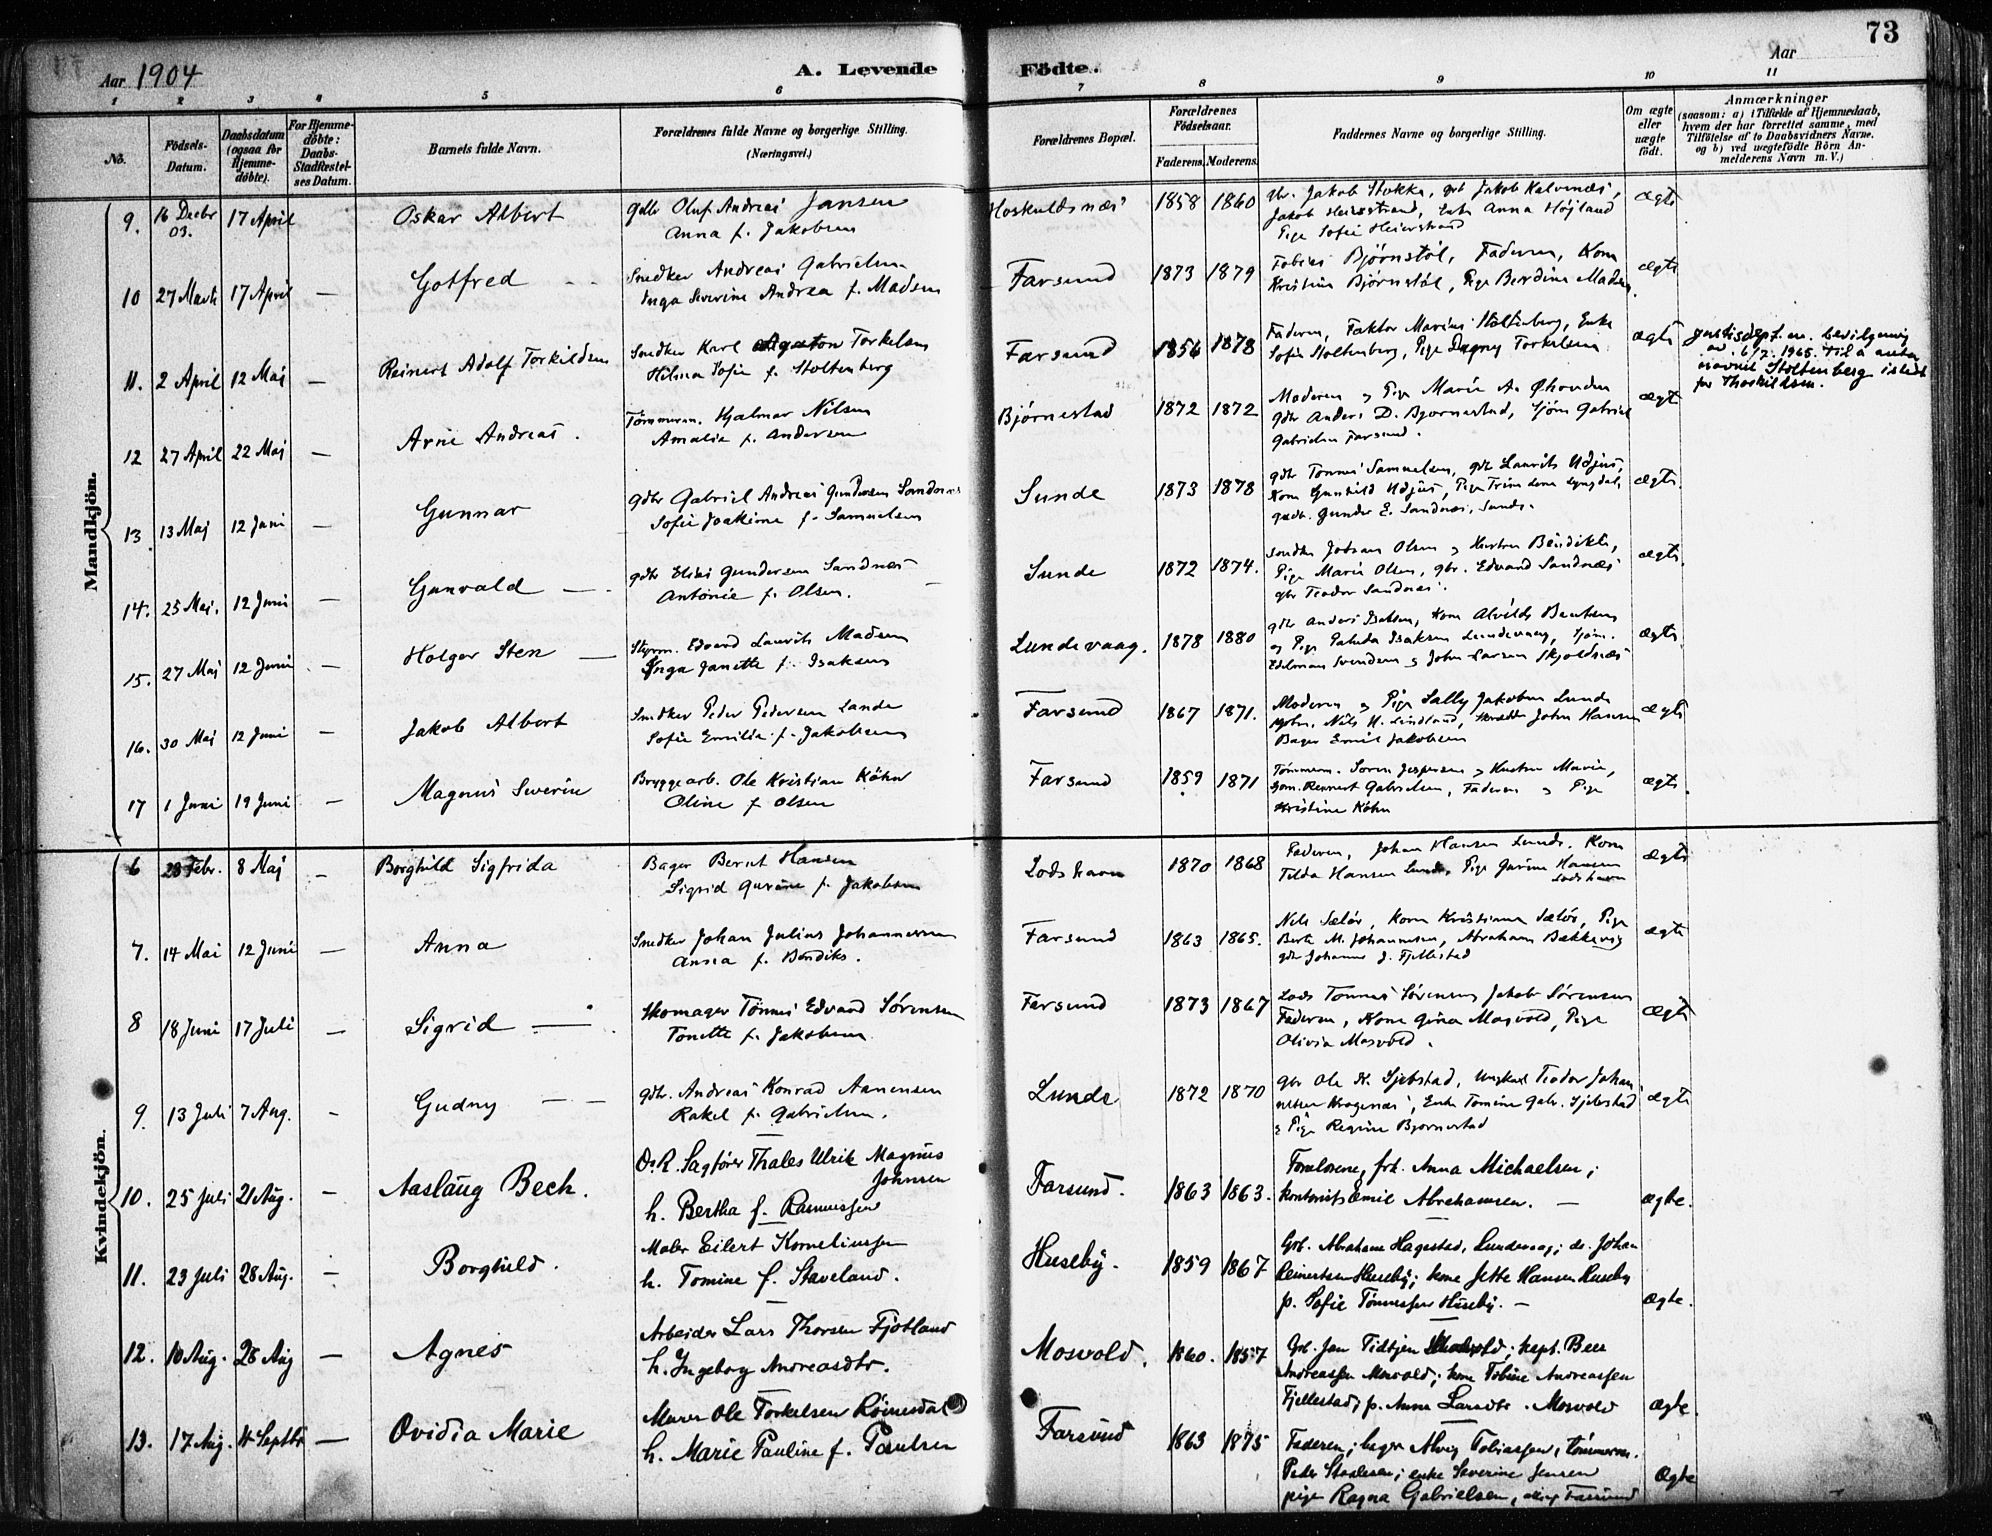 73
Aar 1904
A. Levende Födte.
Aar
1 2 3 4 5 6 7 8 9 10 11
No.
Födsels-Datum.
Daabsdatum (ogsaa för Hjemme-döbte).
For Hjemme-döbte: Daabs-Stadfæstel-ses Datum.
Barnets fulde Navn.
Forældrenes fulde Navne og borgerlige Stilling.
(Næringsvei.)
Forældrenes Bopæl.
Forældrenes Födselsaar.
Faderens. Moderens.
Faddernes Navne og borgerlige Stilling.
Om ægte eller uægte födt.
Anmærkninger
(saasom: a) i Tilfælde af Hjemmedaab, hvem der har forrettet samme, med Tilföielse af to Daabsvidners Navne. og b) ved uægtefödte Börn An-melderens Navn m. V.)
Mandkjön.
9. 16 Decbr 03. 17 April Oskar Albert
Gdbr Oluf Andreas Jansen
Anna f. Jakobsen
1858 1860
Gbr. Jakob Stokke, gbr Jakob Kalvenæs,
Enke Anna Höjland
Pige Sofie
ægte
10 27 Marts 17 April — Gotfred
Snedker Andreas Gabrielsen
Inga Severine Andrea f. Madsen
Farsund 1873 1879
Tobias Bjørnstøl, Faderen, Kone
Kristine Bjørnstøl, Pige Berdine Madsen.
ægte
11. 2 April 12 Maj — Reinert Adolf Torkildsen
Snedker Karl Agaton Torkelsen
Hilma Sofie f. Stoltenberg
Farsund 1856 1878
Faderen, Faktor Marius Stoltenberg, Enke
Sofie Stoltenberg, Pige Dagny Torkelsen
ægte
Justisdept.m. bevilgning
av 6/7. 1965. til å anta
navnet Stoltenberg istedet
for Thorkildsen.
12 27 April 22 Maj — Arne Andreas.
Tømmerm. Hjalmar Nilsen
Amalie f. Andersen
Bjørnestad 1872 1872
Moderen og Pige Marie A.
Gdbr Anders D. Bjørnestad, Sjöm Gabriel
Gabrielsen Farsund.
ægte
13 13 Maj 12 Juni — Gunnar
Gdbr Gabriel Andreas Gundersen Sandnæs
Sofie Joakime f. Samuelsen
Sunde 1873 1878
Gdbr Tønnes Samuelsen, gdbr Laurits Udjus,
Kone Gunhild Udjus, Pige Trine Lyngdal,
Gunder E. Sandnæs, Sunde.
ægte
14. 25 Maj. 12 Juni — Gunvald
Gdbr Elias Gundersen Sandnæs
Antonie f. Olsen.
Sunde 1872 1874.
Snedker Olsen og Hustru Bendikte,
Pige Marie Olsen, gbr. Edvard Sandnæs
gbr Teodor Sandnæs.
ægte
15. 27 Maj 12 Juni — Holger Sten
Styrm. Edvard Laurits Madsen
Inga Janette f. Isaksen
Lundevaag. 1878 1880
Gdbr Anders Isaksen, Kone Alvilde Bentsen
og Pige Isaksen Lundevaag, Sjöm.
Edelman Svendsen og John Larsen Skjoldnæs
ægte
16. 30 Maj 12 Juni — Jakob Albert
Snedker Peder Pedersen Lande
Sofie Emilie f. Jakobsen
Farsund 1867 1871.
Moderen og Pige Sally Jakobsen Lunde
Nils H. Lindland, John Hansen
Bager Emil Jakobsen
ægte
17 1 Juni 19 Juni — Magnus Severin
Bryggearb. Ole Kristian Köhn
Oline f Olsen
Farsund 1859 1871
Tömmerm. Sören Jespersen og Hustru Marie,
Sjöm. Rennert Gabrielsen, Faderen og Pige
Kristine Köhn
ægte
Kvindekjön.
6 28 Febr. 8 Maj — Borghild Sigfrida
Bager Bernt Hansen
Sigrid f. Jakobsen
Lodshavn 1870 1868
Faderen, Johan Hansen Lunde, Kone
Tilda Hansen Lunde, Pige Hansen
Lodshavn
ægte
7. 14 Mai 12 Juni — Anna
Snedker Johan Julius Johannesen
Anna f. Bendiks.
Farsund 1863 1865.
Nils Sælör, Kone Kristiane Sælör, Pige
Berte M. Johannesen, Abraham Bakkevig
gdbr Johannes J. Fjellestad
ægte
8 18 Juni 17 Juli — Sigrid
Skomager Tönnes Edvard Sörensen
Tonette f. Jakobsen
Farsund 1873 1867
Lods Tönnes Sörensen, Jakob Sörensen
Faderen, Kone Gina Mosvold, Pige
Olivia Mosvold.
ægte
9. 13 Juli 7 Aug. — Gudny
Gdbr. Andreas Konrad Aanensen
Rakel f. Gabrielsen.
Lunde 1872 1870
Gbr Ole K. Sjebstad, Ungkarl Teodor Johan-
nessen Krogenæs, Enke Tomine Gabr. Sjebstad
og Pige Regine Bjørnestad
ægte
10. 25 Juli 21 Aug. — Aaslaug Bech.
O.R. Sagförer Thales Ulrik Magnus
Johnsen
h. Bertha f. Rasmussen
Farsund. 1863 1863.
Forældrene, frk. Anna Michaelsen;
kontorist Emil Abrahamsen. —
ægte.
11. 23 Juli 28 Aug. — Borghild.
Maler Eilert Korneliussen
h. Tomine f. Staveland.
Huseby. 1859 1867
Grb. Abraham Hagestad, Lundevaag; do. Johan
Reinertsen Huseby; kone Jette Hansen Huseby
p. Sofie Tönnessen Huseby. —
ægte.
12. 10 Aug. 28 Aug — Agnes
Arbeider Lars Thorsen Fjotland
h. Ingeborg Andreasdtr.
Mosvold. 1860. 1857
Grb. Jan Tidtjen Mosvold; kapt. Beer
Andreassen Mosvold; kone Tobine Andreassen
Fjellestad, p. Anna Larsdtr. Mosvold
ægte.
13. 17 Aug. 4 Septbr — Ovidia Marie
Murer Ole Torkelsen Röinesdal
h. Marie Pauline f. Paulsen
Farsund 1863 1875
Faderen; bager Alvej Tobiassen, tömmerm.
Peder Staalesen; enke Severine Jensen
pige Ragna Gabrielsen, alle af Farsund
Ægte